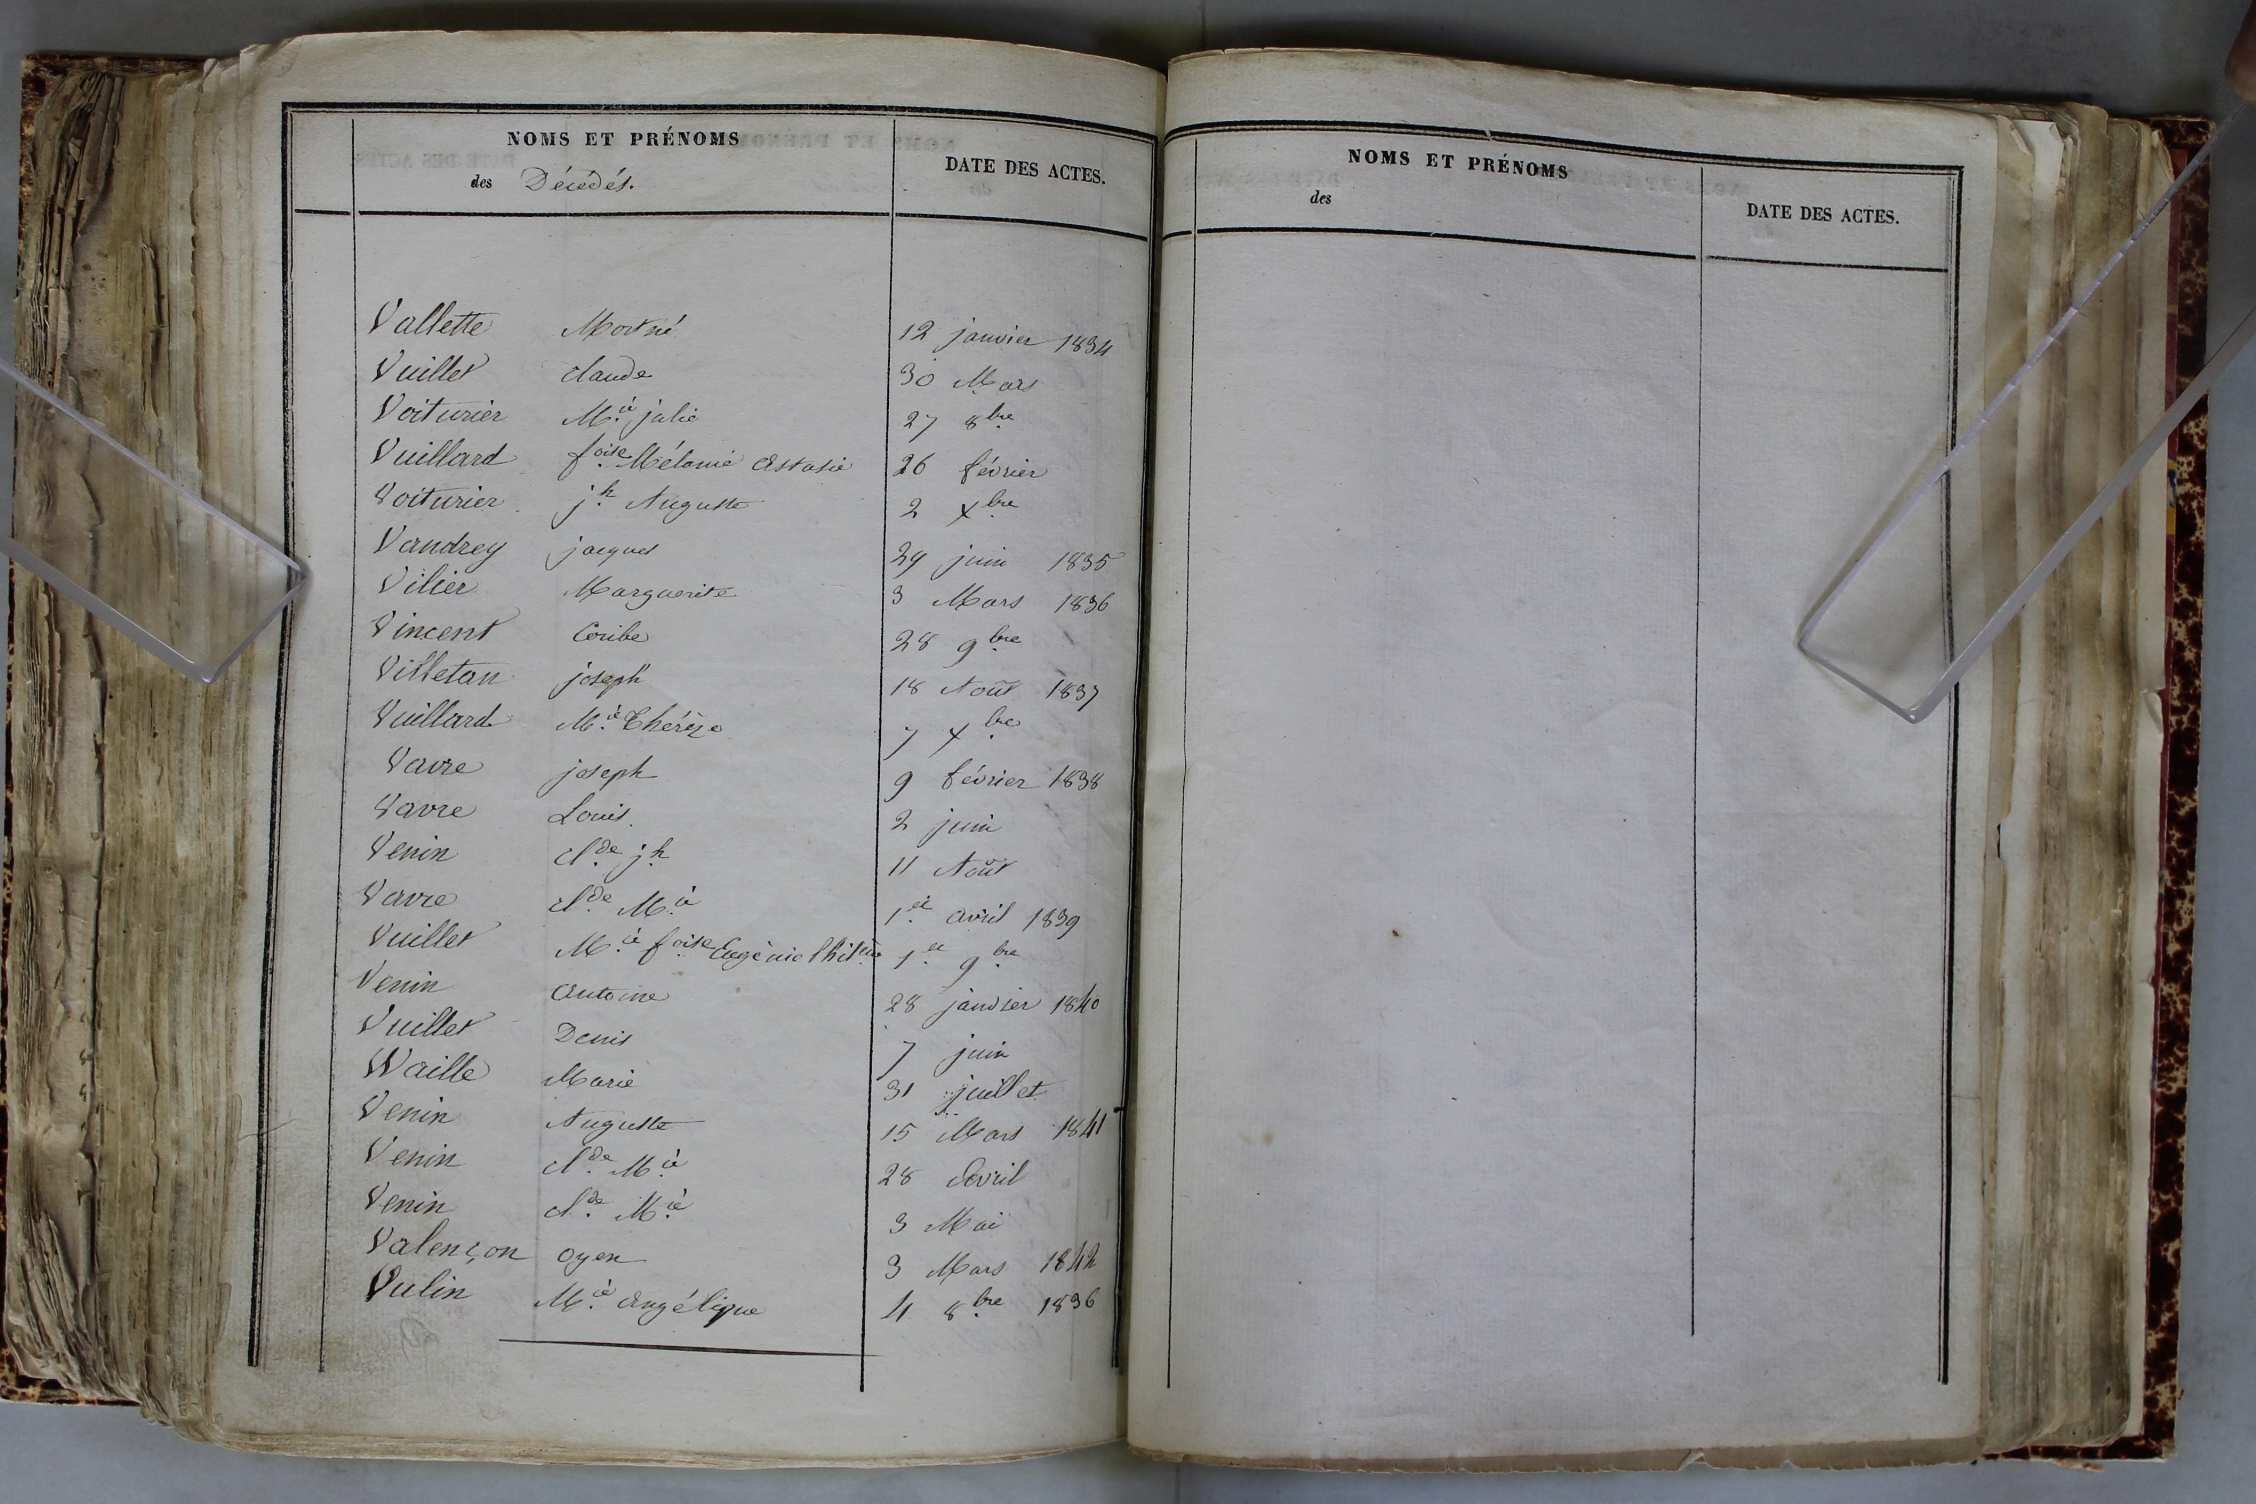 NOMS ET PRÉNOMS
des Décédés.
DATE DES ACTES.
Vallette Mort né 12 janvier 1834
Vuillet claude 30 Mars
Voiturier M.ie julie 27 8bre
Vuillard f.oise Mélanie Astasie 26 février
Voiturier j.h Auguste 2 Xbre
Vandrey jacques 29 juin 1835
Vilier Marguerite 3 Mars 1836
Vincent 28 9bre
Villetan joseph 18 Août 1837
Vuillard M.ie Thérèze 7 Xbre
Vavre joseph 9 février 1838
Vavre Louis. 2 juin
Venin cl.de j.h 11 Août
Vavre cl.de M.ie 1.er avril 1839
Vuillet M.ie f.oise Eugénie 1.er 9bre
Venin antoine 28 janvier 1840
Vuillet Denis 7 juin
Waille Marie 31 juillet
Venin Auguste 15 Mars 1841
Venin cl.de M.ie 28 Avril
Venin cl.de M.ie 3 Mai
Valençon oyen 3 Mars 1842
Vulin M.ie angélique 4 8bre 1836
NOMS ET PRÉNOMS
des
DATE DES ACTES.